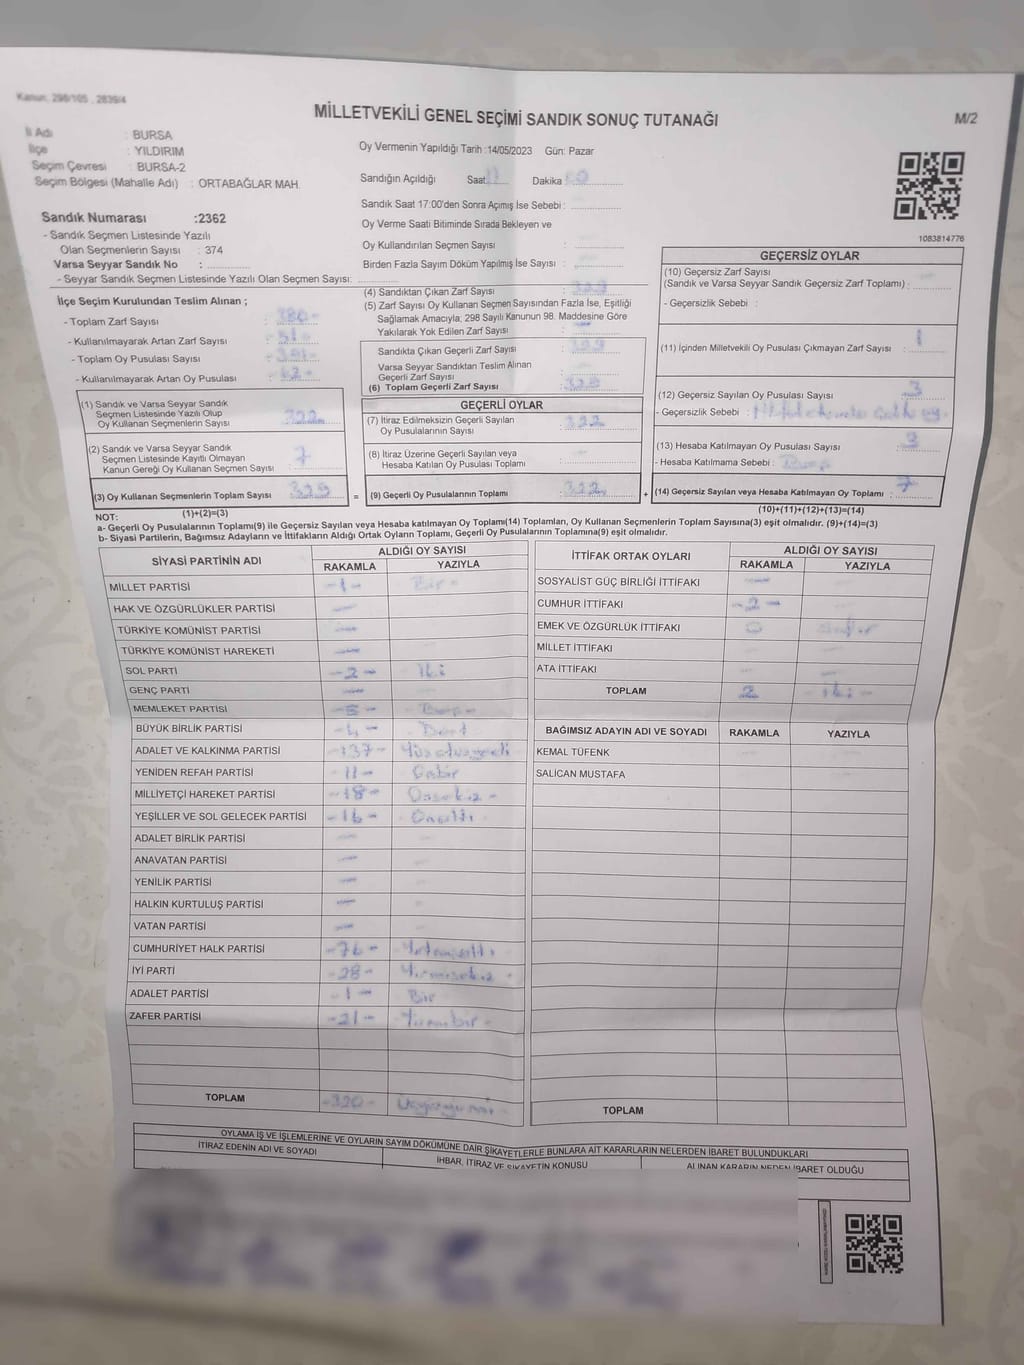 Kanun: 298/105 , 2839/4
MİLLETVEKİLİ GENEL SEÇİMİ SANDIK SONUÇ TUTANAĞI
M/2
İl Adı : BURSA
İlçe : YILDIRIM
Seçim Çevresi : BURSA-2
Seçim Bölgesi (Mahalle Adı) : ORTABAĞLAR MAH.
Oy Vermenin Yapıldığı Tarih :14/05/2023 Gün: Pazar
Sandığın Açıldığı Saat: 17 Dakika : 00
Sandık Saat 17:00'den Sonra Açımış İse Sebebi :
Oy Verme Saati Bitiminde Sırada Bekleyen ve
Oy Kullandırılan Seçmen Sayısı :
Birden Fazla Sayım Döküm Yapılmış İse Sayısı :
1083814776
Sandık Numarası :2362
- Sandık Seçmen Listesinde Yazılı
Olan Seçmenlerin Sayısı : 374
Varsa Seyyar Sandık No :
- Seyyar Sandık Seçmen Listesinde Yazılı Olan Seçmen Sayısı:
İlçe Seçim Kurulundan Teslim Alınan ;
- Toplam Zarf Sayısı : 380-
- Kullanılmayarak Artan Zarf Sayısı : -51-
- Toplam Oy Pusulası Sayısı :
- Kullanılmayarak Artan Oy Pusulası :
(1) Sandık ve Varsa Seyyar Sandık
Seçmen Listesinde Yazılı Olup
Oy Kullanan Seçmenlerin Sayısı : 322
(2) Sandık ve Varsa Seyyar Sandık
Seçmen Listesinde Kayıtlı Olmayan
Kanun Gereği Oy Kullanan Seçmen Sayısı : 7
(3) Oy Kullanan Seçmenlerin Toplam Sayısı : 329
(1)+(2)=(3)
(4) Sandıktan Çıkan Zarf Sayısı : 329
(5) Zarf Sayısı Oy Kullanan Seçmen Sayısından Fazla İse, Eşitliği
Sağlamak Amacıyla; 298 Sayılı Kanunun 98. Maddesine Göre
Yakılarak Yok Edilen Zarf Sayısı :
Sandıkta Çıkan Geçerli Zarf Sayısı : 329
Varsa Seyyar Sandıktan Teslim Alınan
Geçerli Zarf Sayısı :
(6) Toplam Geçerli Zarf Sayısı : 329
GEÇERLİ OYLAR
(7) İtiraz Edilmeksizin Geçerli Sayılan
Oy Pusulalarının Sayısı : 322
(8) İtiraz Üzerine Geçerli Sayılan veya
Hesaba Katılan Oy Pusulası Toplamı :
= (9) Geçerli Oy Pusulalarının Toplamı : 322
GEÇERSİZ OYLAR
(10) Geçersiz Zarf Sayısı
(Sandık ve Varsa Seyyar Sandık Geçersiz Zarf Toplamı) :
- Geçersizlik Sebebi :
(11) İçinden Milletvekili Oy Pusulası Çıkmayan Zarf Sayısı : 1
(12) Geçersiz Sayılan Oy Pusulası Sayısı : 3
- Geçersizlik Sebebi :
(13) Hesaba Katılmayan Oy Pusulası Sayısı : 3
- Hesaba Katılmama Sebebi :
+ (14) Geçersiz Sayılan veya Hesaba Katılmayan Oy Toplamı : 7
(10)+(11)+(12)+(13)=(14)
NOT:
a- Geçerli Oy Pusulalarının Toplamı(9) ile Geçersiz Sayılan veya Hesaba katılmayan Oy Toplamı(14) Toplamları, Oy Kullanan Seçmenlerin Toplam Sayısına(3) eşit olmalıdır. (9)+(14)=(3)
b- Siyasi Partilerin, Bağımsız Adayların ve İttifakların Aldığı Ortak Oyların Toplamı, Geçerli Oy Pusulalarının Toplamına(9) eşit olmalıdır.
SİYASİ PARTİNİN ADI ALDIĞI OY SAYISI
RAKAMLA YAZIYLA
MİLLET PARTİSİ -1- Bir -
HAK VE ÖZGÜRLÜKLER PARTİSİ
TÜRKİYE KOMÜNİST PARTİSİ
TÜRKİYE KOMÜNİST HAREKETİ
SOL PARTİ -2- İki
GENÇ PARTİ
MEMLEKET PARTİSİ -5-
BÜYÜK BİRLİK PARTİSİ -4- Dört
ADALET VE KALKINMA PARTİSİ -137- Yüzotuzyedi
YENİDEN REFAH PARTİSİ -11- Onbir
MİLLİYETÇİ HAREKET PARTİSİ -18- Onsekiz -
YEŞİLLER VE SOL GELECEK PARTİSİ -16- Onaltı
ADALET BİRLİK PARTİSİ
ANAVATAN PARTİSİ
YENİLİK PARTİSİ
HALKIN KURTULUŞ PARTİSİ
VATAN PARTİSİ
CUMHURİYET HALK PARTİSİ -76- Yetmişaltı
İYİ PARTİ -28- Yirmisekiz
ADALET PARTİSİ -1- Bir
ZAFER PARTİSİ -21- Yirmibir -
TOPLAM -320- Üçyüzyirmi -
İTTİFAK ORTAK OYLARI ALDIĞI OY SAYISI
RAKAMLA YAZIYLA
SOSYALİST GÜÇ BİRLİĞİ İTTİFAKI
CUMHUR İTTİFAKI -2-
EMEK VE ÖZGÜRLÜK İTTİFAKI 0
MİLLET İTTİFAKI
ATA İTTİFAKI
TOPLAM 2 - iki -
BAĞIMSIZ ADAYIN ADI VE SOYADI RAKAMLA YAZIYLA
KEMAL TÜFENK
SALİCAN MUSTAFA
TOPLAM
OYLAMA İŞ VE İŞLEMLERİNE VE OYLARIN SAYIM DÖKÜMÜNE DAİR ŞİKAYETLERLE BUNLARA AİT KARARLARIN NELERDEN İBARET BULUNDUKLARI
İTİRAZ EDENİN ADI VE SOYADI
İHBAR, İTİRAZ VE ŞİKAYETİN KONUSU
ALINAN KARARIN NEDEN İBARET OLDUĞU